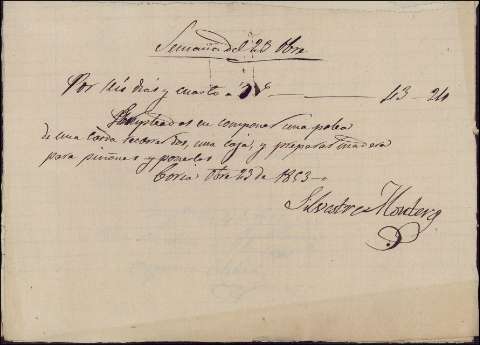 Semana del 23 Obre
Por seis dias y cuarto a 7 rs 43 - 24
Empleados en componer una polea
de una carda recorrer dos, una caja, y preparar madera
para piñones y ponerlos
Coria Obre 23 de 1853
Silvestre Montero